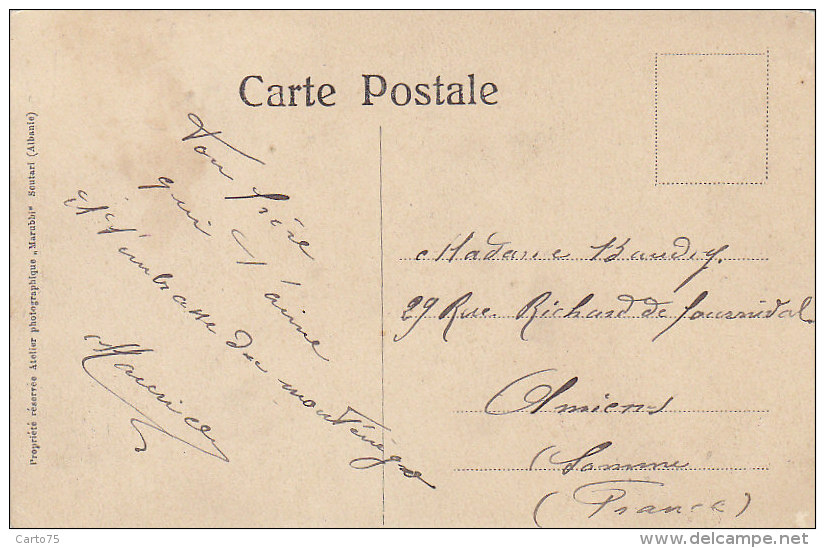 Carte Postale
Ton frère
qui t'aime
et t'embrasse du monténégro
Maurice
Madame Baudry.
29 Rue Richard de fournival
Amiens
Somme
(France)
Propriété réservée Atelier photographique „Marubbi" Scutari (Albanie)
Carto75
www.delcampe.net